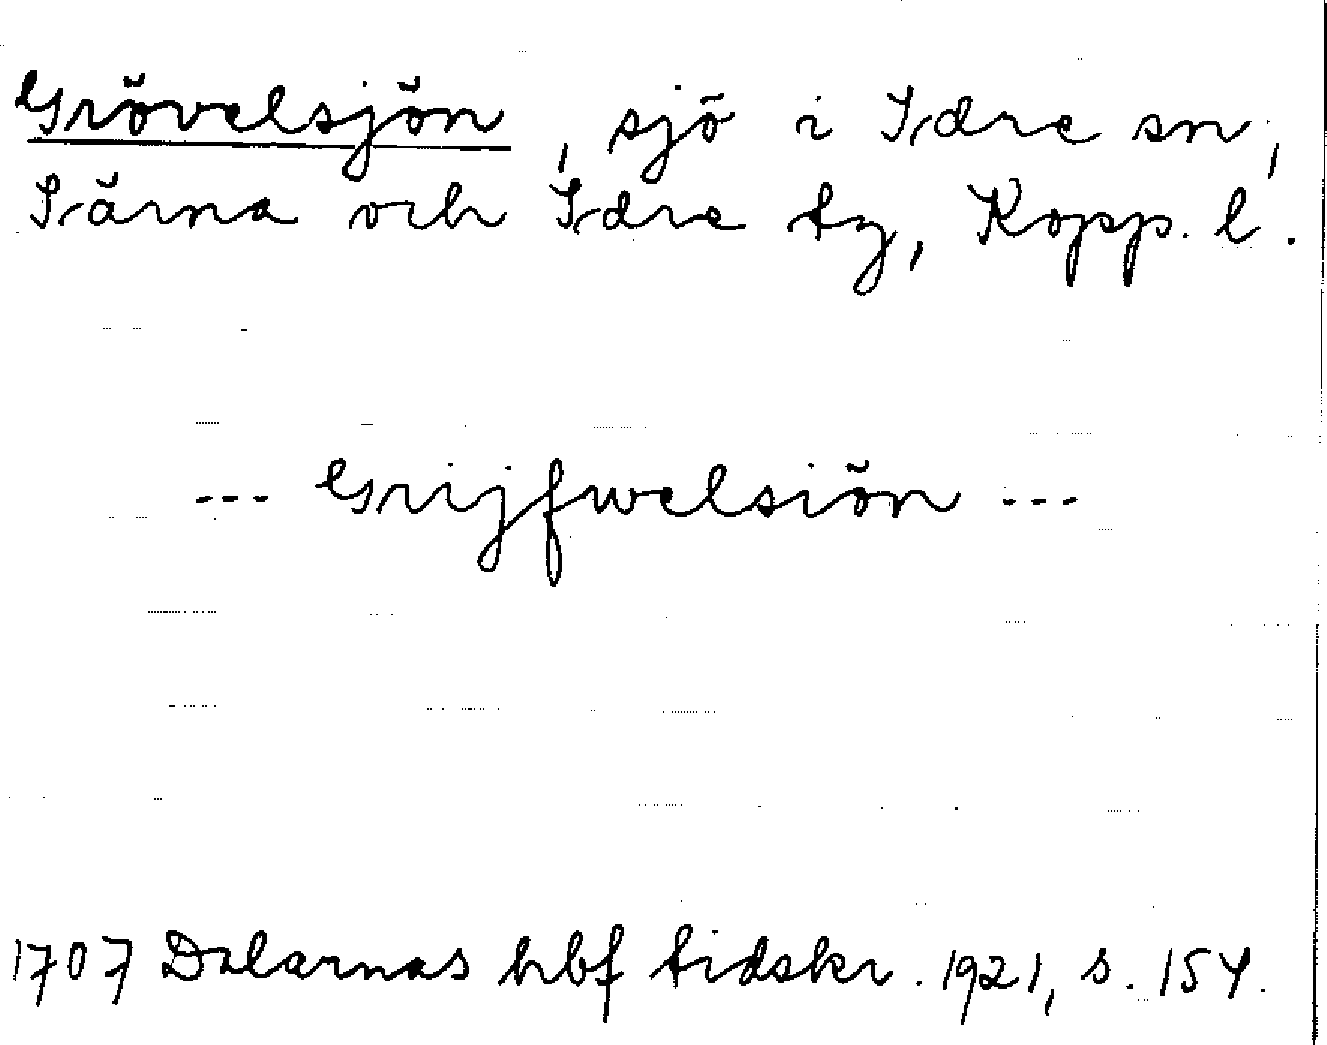 Grövelsjön, sjö i Idre sn,
Särna och Idre tg, Kopp. l.
--- Grijfwelsiön ---
1707 Dalarnas hbf tidskr. 1921, s. 154.